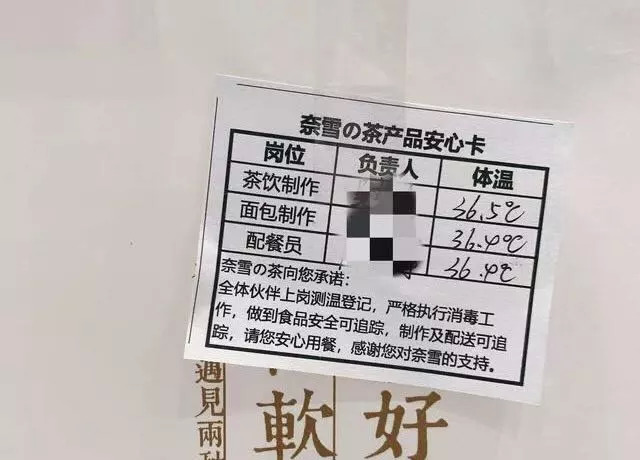 奈雪の茶产品安心卡
岗位 负责人 体温
茶饮制作 36.5℃
面包制作 36.4℃
配餐员 36.4℃
奈雪の茶向您承诺:
全体伙伴上岗测温登记，严格执行消毒工
作，做到食品安全可追踪，制作及配送可追
踪，请您安心用餐，感谢您对奈雪的支持。
遇見兩
軟
好